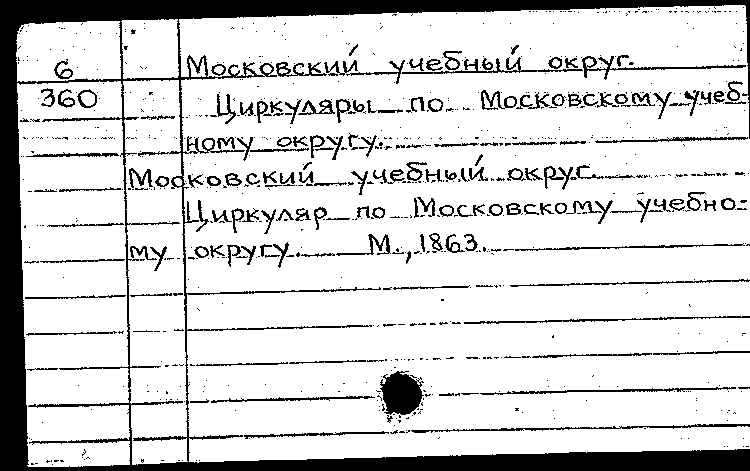 6 Московский учебный округ.
360 Циркуляры по Московскому учеб-
ному округу.
Московский учебный округ.
Циркуляр по Московскому учебно-
му округу. М., 1863.